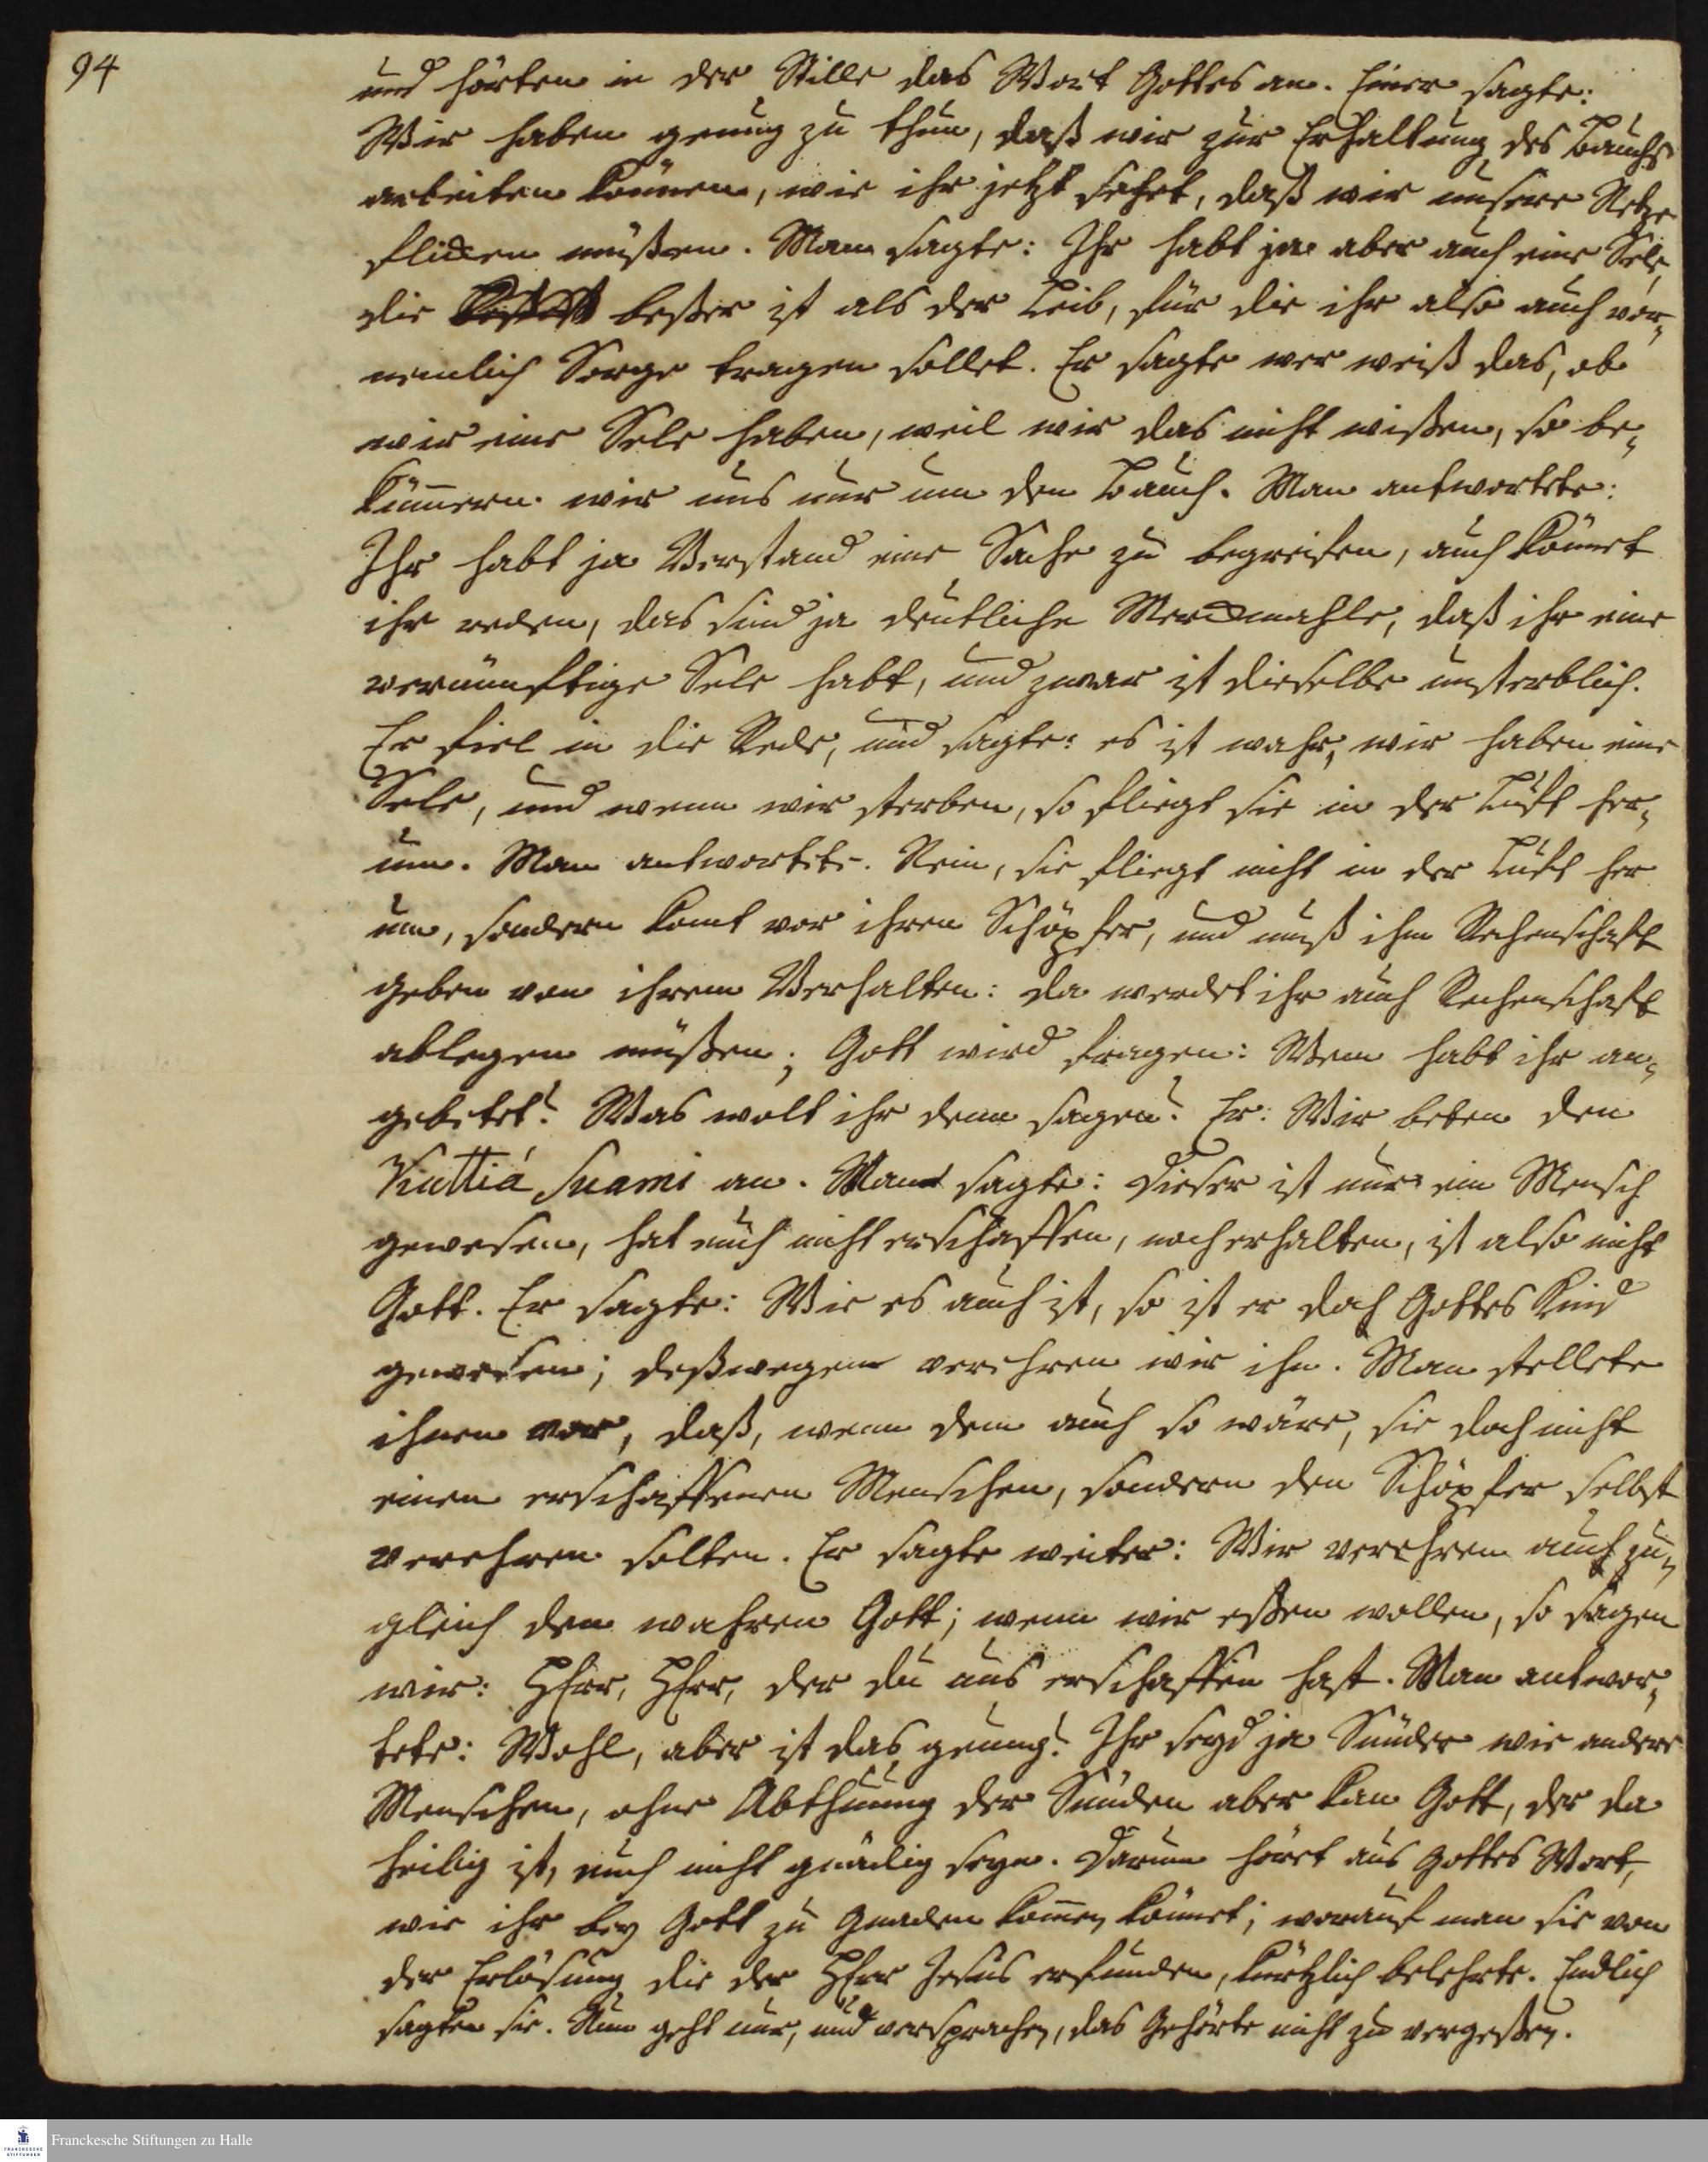 94
und hörten in der Stille das Wort Gottes an. Einer sagte:
Wir haben genug zu thun, daß wir zur Erhaltung des Bauchs
arbeiten können, wie ihr jetzt sehet, daß wir unsere Netze
flicken müßen. Man sagte: Ihr habt ja aber auch eine Sele,
die beßer ist als der Leib, für die ihr also auch vor-
nemlich Sorge tragen sollet. Er sagte wer weiß das, ob
wir eine Sele haben, weil wir das nicht wißen, so be-
kümmern wir uns nur um den Bauch. Man antwortete:
Ihr habt ja Verstand eine Sache zu begreifen, auch könnet
ihr reden, das sind ja deutliche Merckmahle, daß ihr eine
vernünftige Sele habt, und zwar ist dieselbe unsterblich.
Er fiel in die Rede, und sagte: es ist wahr, wir haben eine
Sele, und wenn wir sterben, so fliegt sie in der Luft her-
um. Man antwortete. Nein, sie fliegt nicht in der Luft her
um, sondern komt vor ihren Schöpfer, und muß ihm Rechenschaft
geben von ihrem Verhalten: da werdet ihr auch Rechenschaft
ablegen müßen; Gott wird fragen: Wem habt ihr an-
gebetet? Was wolt ihr denn sagen? Er: Wir beten den
Kuttiá Suami an. Man sagte: Dieser ist nur ein Mensch
gewesen, hat euch nicht erschaffen, noch erhalten, ist also nicht
Gott. Er sagte: Wie es auch ist, so ist er doch Gottes Kind
gewesen; deßwegen verehren wir ihn. Man stellete
ihnen vor, daß, wenn dem auch so wäre, sie doch nicht
einen erschaffenen Menschen, sondern den Schöpfer selbst
verehren solten. Er sagte weiter: Wir verehren auch zu-
gleich den wahren Gott; wenn wir eßen wollen, so sagen
wir: HErr, HErr, der du uns erschaffen hast. Man antwor-
tete: Wohl, aber ist das genug? Ihr seyd ja Sünder wie andere
Menschen, ohne Abthuung der Sünden aber kan Gott, der da
heilig ist, euch nicht gnädig seyn. Darum höret aus Gottes Wort,
wie ihr bey Gott zu Gnaden kommen könnet; worauf man sie von
der Erlösung die der HErr Jesus erfunden, kürtzlich belehrte. Endlich
sagten sie. Nun geht nur, und versprachen, das Gehörte nicht zu vergeßen.
FRANCKESCHE
STIFTUNGEN
Franckesche Stiftungen zu Halle